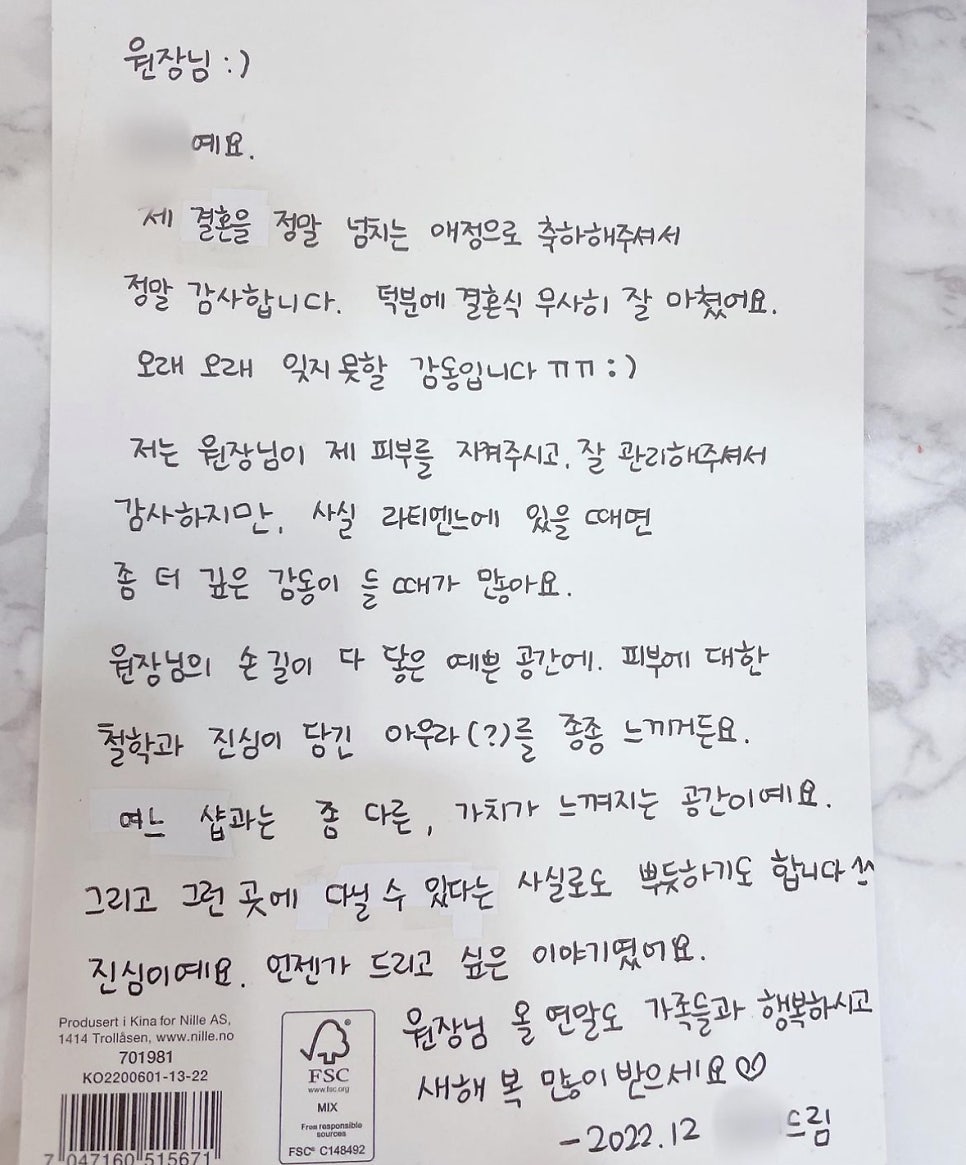 원장님 :)
예요.
제 결혼을 정말 넘치는 애정으로 축하해주셔서
정말 감사합니다. 덕분에 결혼식 무사히 잘 마쳤어요.
오래 오래 잊지 못할 감동입니다 ㅠㅠ :)
저는 원장님이 제 피부를 지켜주시고, 잘 관리해주셔서
감사하지만, 사실 라티엔느에 있을 때면
좀 더 깊은 감동이 들 때가 많아요.
원장님의 손길이 다 닿은 예쁜 공간에. 피부에 대한
철학과 진심이 담긴 아우라(?)를 종종 느끼거든요.
여느 샵과는 좀 다른, 가치가 느껴지는 공간이예요.
그리고 그런 곳에 다닐 수 있다는 사실로도 뿌듯하기도 합니다 ^^
진심이예요. 언젠가 드리고 싶은 이야기였어요.
원장님 올 연말도 가족들과 행복하시고
새해 복 많이 받으세요♡
-2022.12 드림
Produsert i Kina for Nille AS,
1414 Trollåsen, www.nille.no
701981
KO2200601-13-22
7 047160 515671
FSC
www.fsc.org
MIX
Free responsible
sources
FSC® C148492